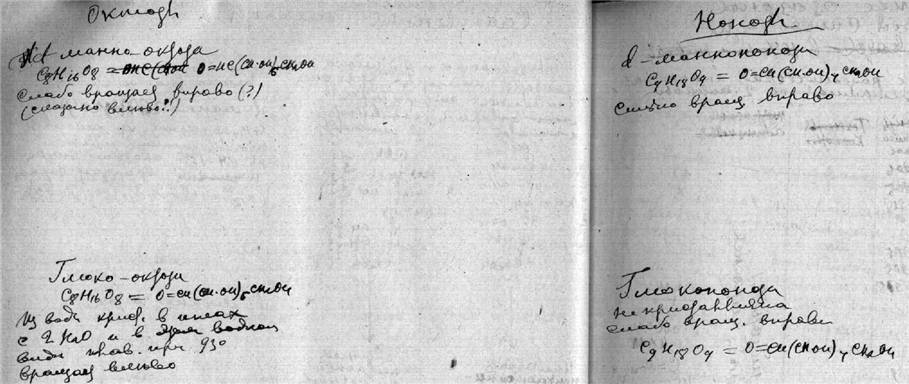 Октозы
d-манно-октоза
C8H16O8 = O=HC(CH·OH)6CH2OH
слабо вращает вправо (?)
(сказано влево?!)
Глюко-октоза
C8H16O8 = O=CH(CH·OH)6CH2OH
Из воды крист. в иглах
с 2 H2O и в этом водном
виде плав. при 93°
вращает влево
Нонозы
d-манноноза
C9H18O9 = O=CH(CH·OH)7CH2OH
сильно вращ. вправо
Глюконоза
не кристалл
слабо вращ. вправо
C9H18O9 = O=CH(CHOH)7CH2OH